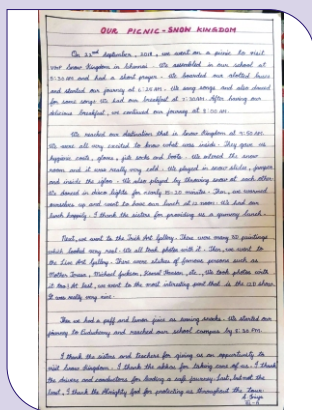 OUR PICNIC - SNOW KINGDOM
On 22nd September, 2018, we went on a picnic to visit
Snow Kingdom in Chennai. We assembled in our school at
5:30 AM and had a short prayer. We boarded our allotted buses
and started our journey at 6:25 AM. We sang songs and also danced
for some songs. We had our breakfast at 7:30AM. After having our
delicious breakfast, we continued our journey at 8:00 AM.
We reached our destination that is Snow Kingdom at 9:50 AM.
We were all very excited to know what was inside. They gave us
hygienic coats, gloves, socks and boots. We entered the snow
room and it was really very cold. We played in snow slides,
and inside the igloo. We also played by throwing snow at each other.
We danced in disco lights for nearly 15-20 minutes. Then, we warmed
ourselves up and went to have our lunch at 12 noon. We had our
lunch happily. I thank the sisters for providing us a yummy lunch.
Next, we went to the Trick Art Gallery. There were many 3D paintings
which looked very real. We all took photos with it. Then, we went to
the Live Art Gallery. There were statues of famous persons such as
Mother Teresa, Michael Jackson, Kamal Hassan, etc., We took photos with
it too. At last, we went to the most interesting part that is the 12D show.
It was really very nice.
Then we had a puff and lemon juice as evening snacks. We started our
journey to Puducherry and reached our school campus by 5:30 PM.
I thank the sisters and teachers for giving us an opportunity to
visit Snow Kingdom. I thank the akkas for taking care of us. I thank
the drivers and conductors for having a safe journey. Last, but not the
least, I thank the Almighty God for protecting us throughout the tour.